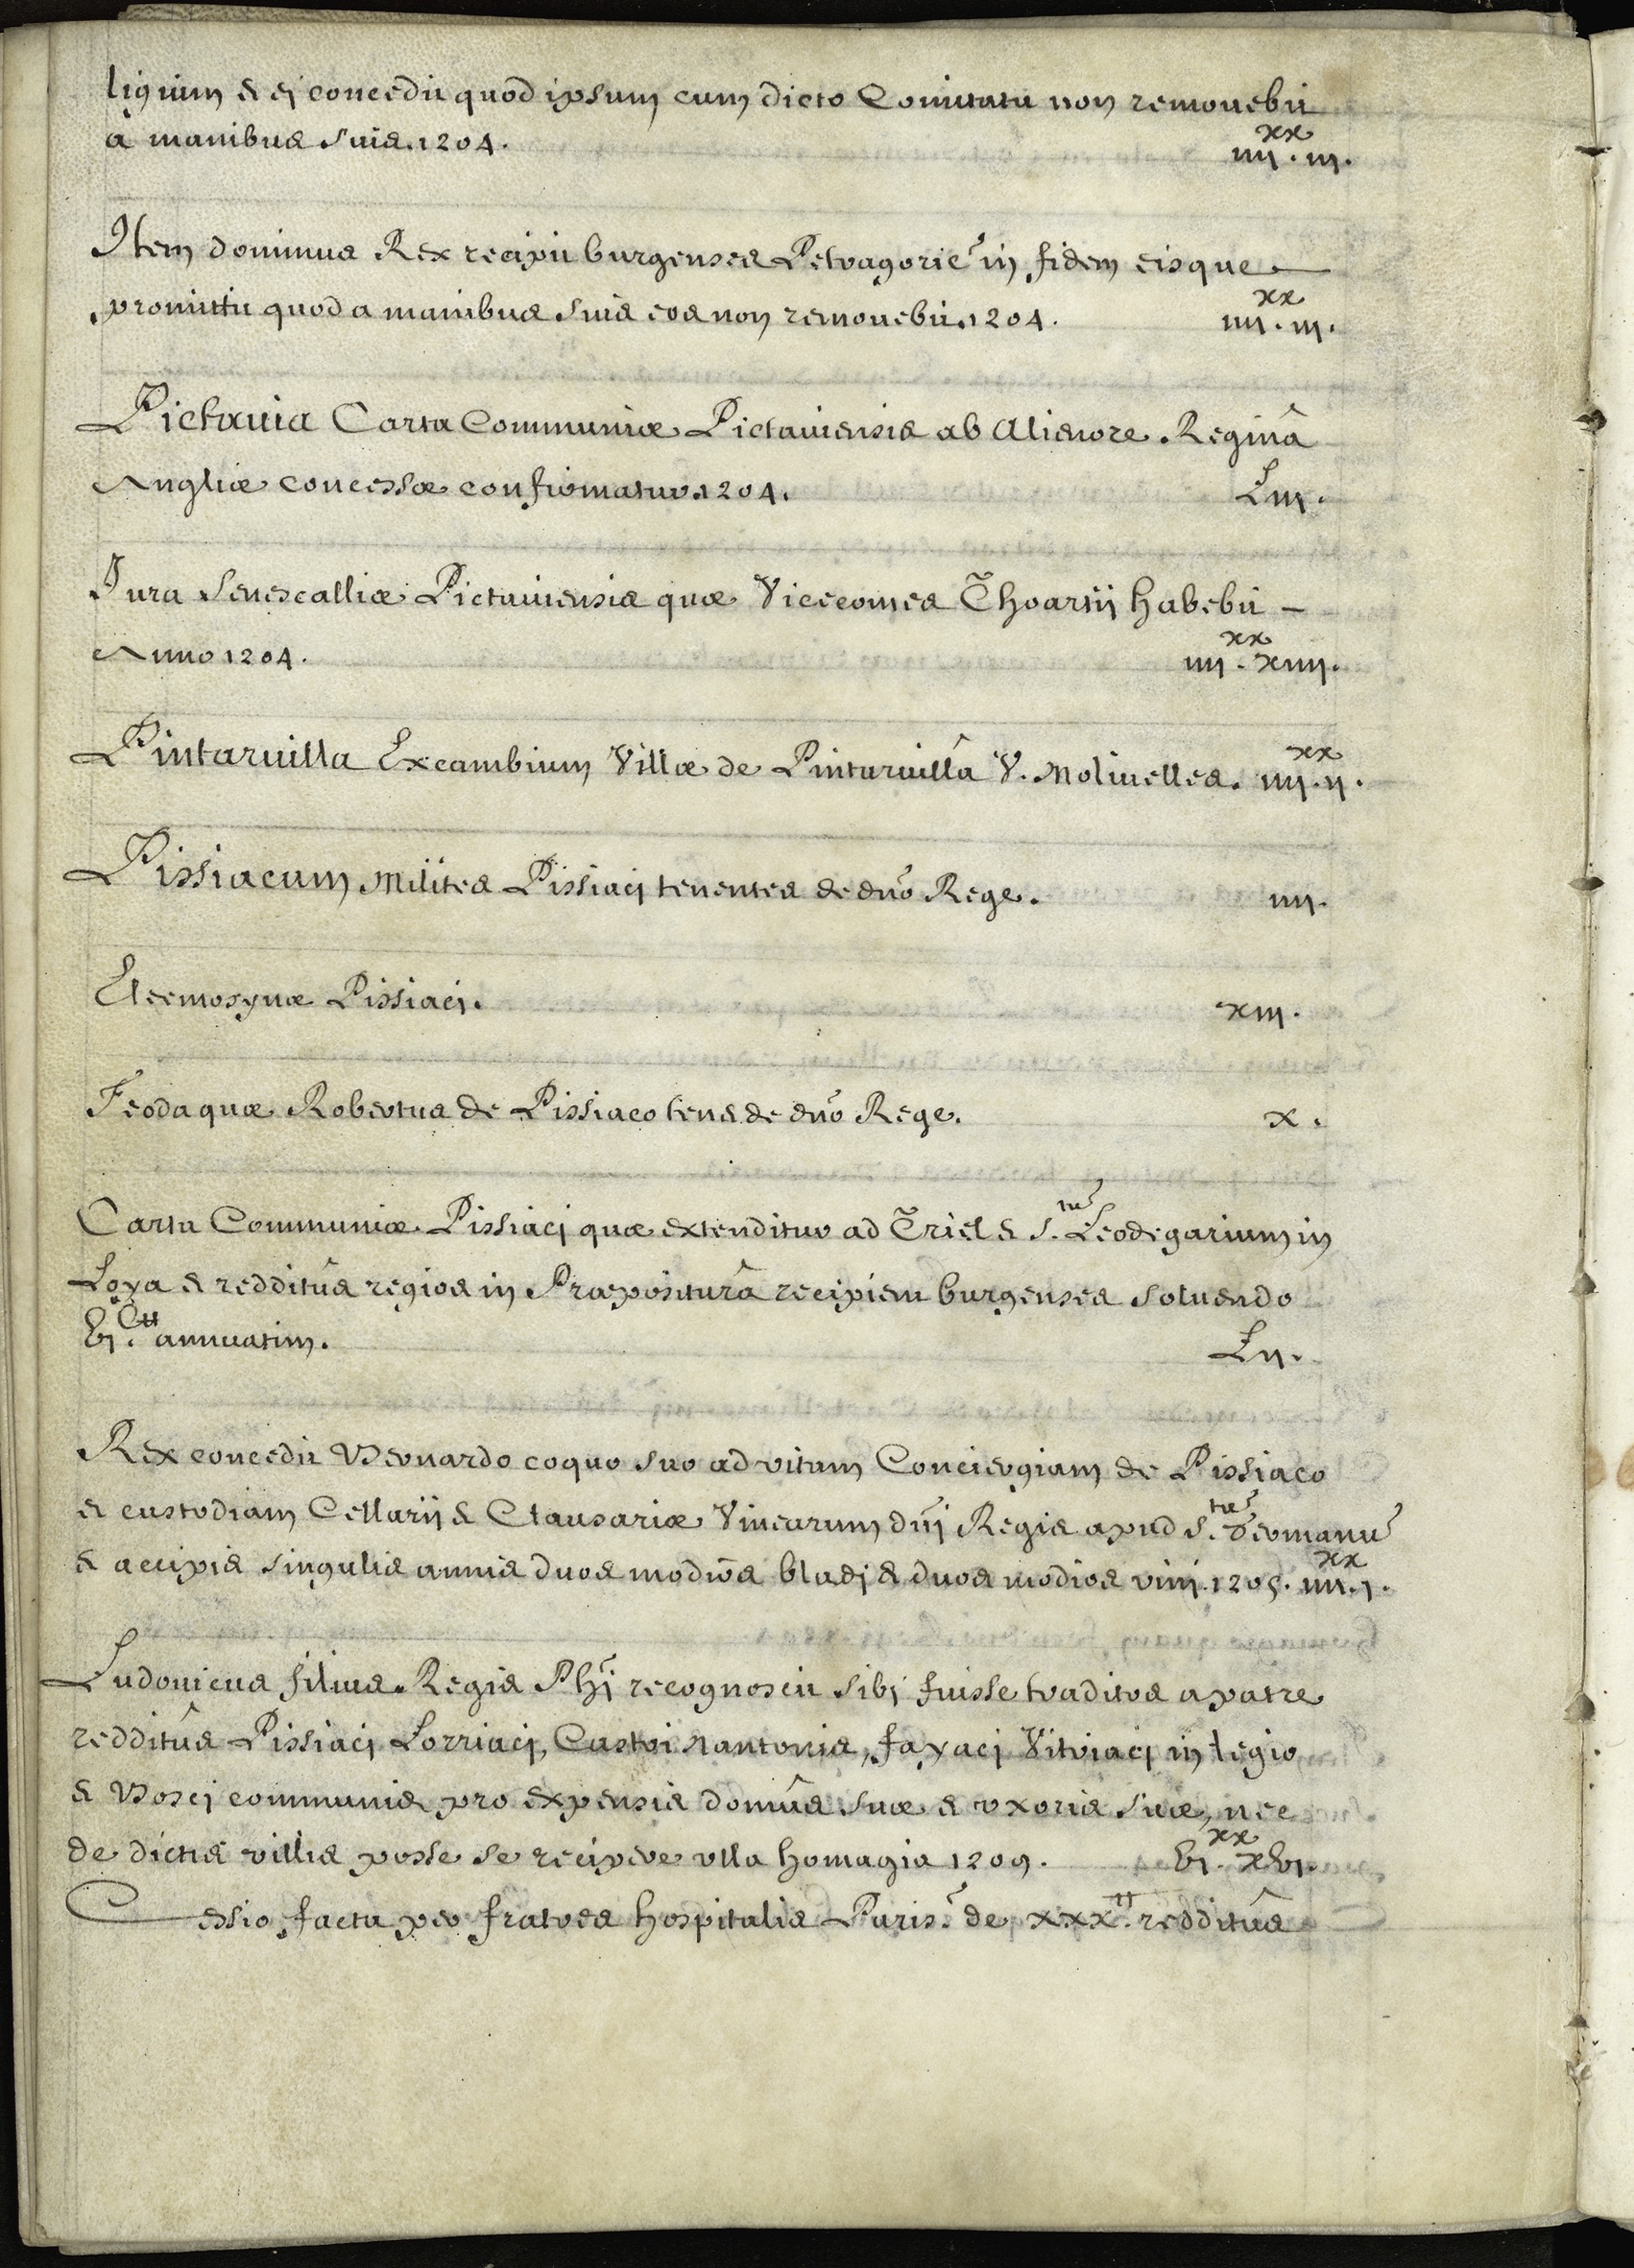 ligium & ei concedit quod ipsum cum dicto Comitatu non remouebit
a manibus suis. 1204. iiij.xx iij.
Item dominus Rex recipit burgenses Petragoric̃ in fidem eisque
promittit quod a manibus suis eos non remouebit. 1204. iiij.xx iij.
Pictauia Carta Communiæ Pictauiensis ab Alienore Reginâ
Angliæ concessæ confirmatur. 1204. Liij.
Jura Senescalliæ Pictauiensis quæ Vicecomes Thoartij habebit
Anno 1204. iiij.xx xiiij.
Pintaruilla Excambium Villæ de Pintaruillâ V. Moliuelles. iiij.xx ij.
Pissiacum Milites Pissiaci tenentes de dño Rege. iiij.
Eleemosynæ Pissiaci. xiij.
Feoda quæ Robertus de Pissiaco tenet de dño Rege. x.
Carta Communiæ Pissiaci quæ extenditur ad Triel & S.tũ Leodegarium in
Loya & redditûs regios in Præpositurâ recipient burgenses soluendo
vi.C tt annuatim. Lij.
Rex concedit Bernardo coquo suo ad vitam Conciergiam de Pissiaco
& custodiam Cellarij & Clausariæ Vinearum dñi Regis apud S.tũ Germanũ
& accipit singulis annis duos modios bladi & duos modios vini. 1205. iiij.xx j.
Ludouicus filius Regis Phĩ recognoscit sibi fuisse traditos a patre
redditûs Pissiaci Lorriaci, Castri Nantonis, fayaci Vitriaci in legio
& Bosci communis pro expensis domûs suæ & vxoris suæ, nec
de dictis villis posse se recipere vlla homagia 1209. vi.xx xvi.
Cessio facta per fratres hospitalis Paris. de xxx.tt redditûs